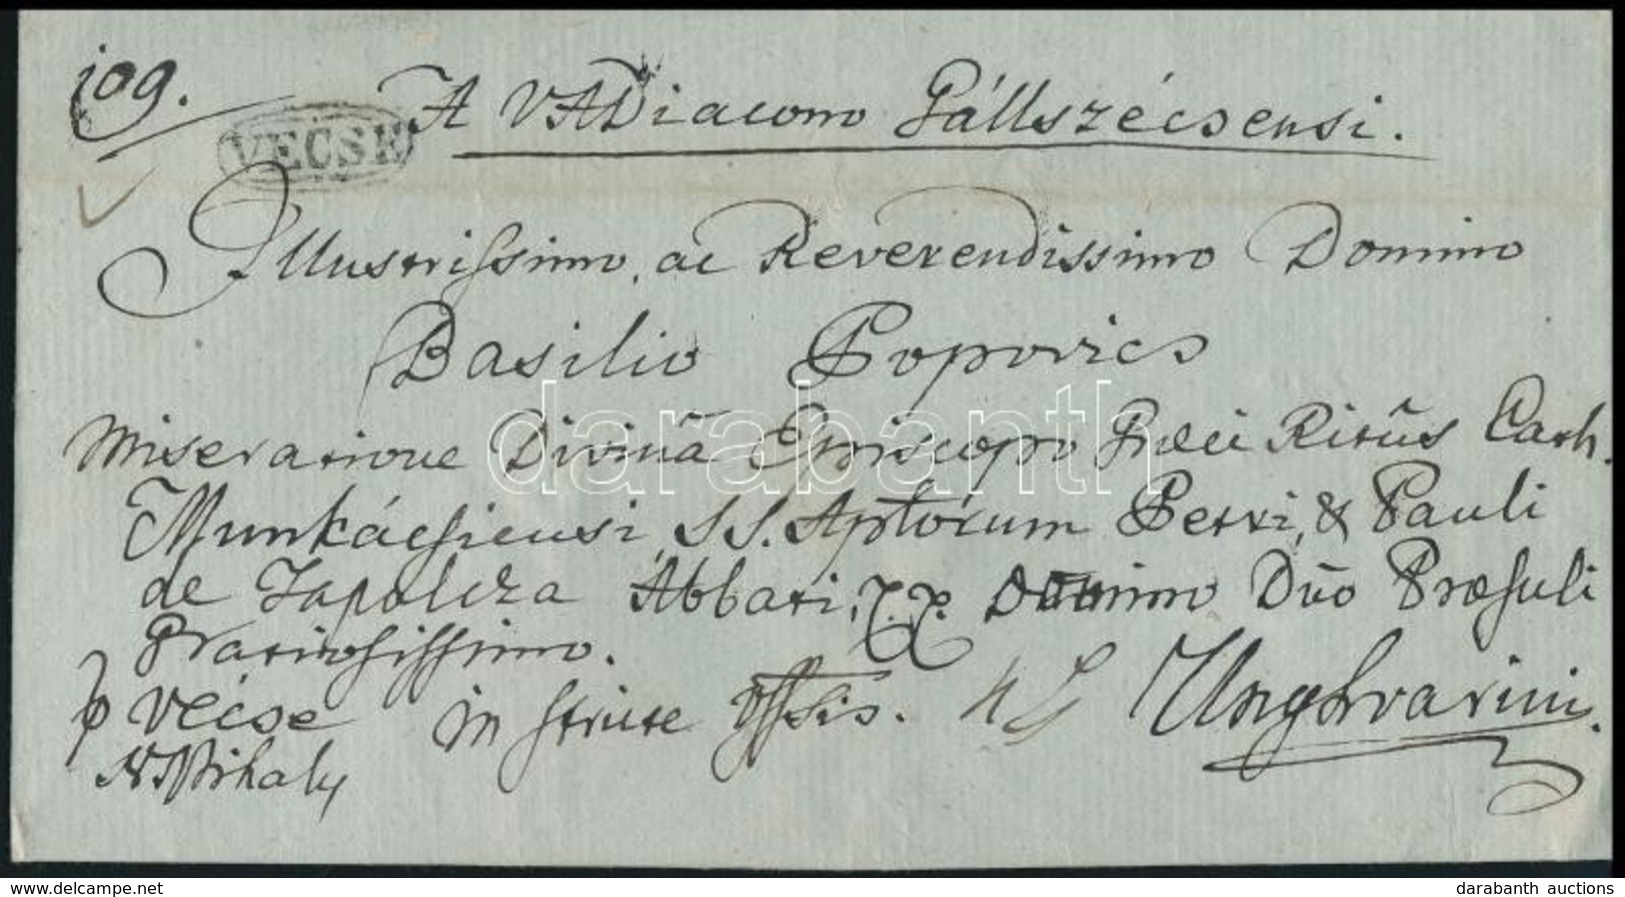 109.
VÉCSE
A VADiacono Gállszécsensi.
Illustrissimo, ac Reverendissimo Domino
Basilio Popovics
Miseratione Divinâ Episcopo Græci Ritûs Cath.
Munkácsiensi, SS. Aptorum Petri, & Pauli
de Tapolcza Abbati, Domino Dño Præsuli
Gratiosissimo.
p Vécse in stricte Offsis. Unghvarini.
N Mihaly
darabanth
www.delcampe.net
darabanth auctions